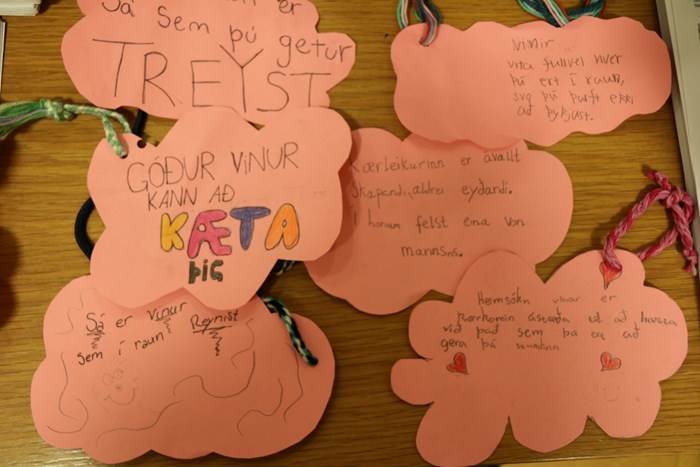 er
Sá sem þú getur
TREYST
Vinir
vita fullvel hver
þú ert í raun,
svo þú þarft ekki
að þykjast.
GÓÐUR VINUR
KANN AÐ
KÆTA
ÞIG
Kærleikurinn er ávallt
skapandi, aldrei eyðandi.
Í honum felst eina von
mannsins.
Sá er vinur
sem í raun Reynist
Heimsókn vinar er
fullkomin ástæða til að hætta
við það sem þú ert að
gera þá stundina